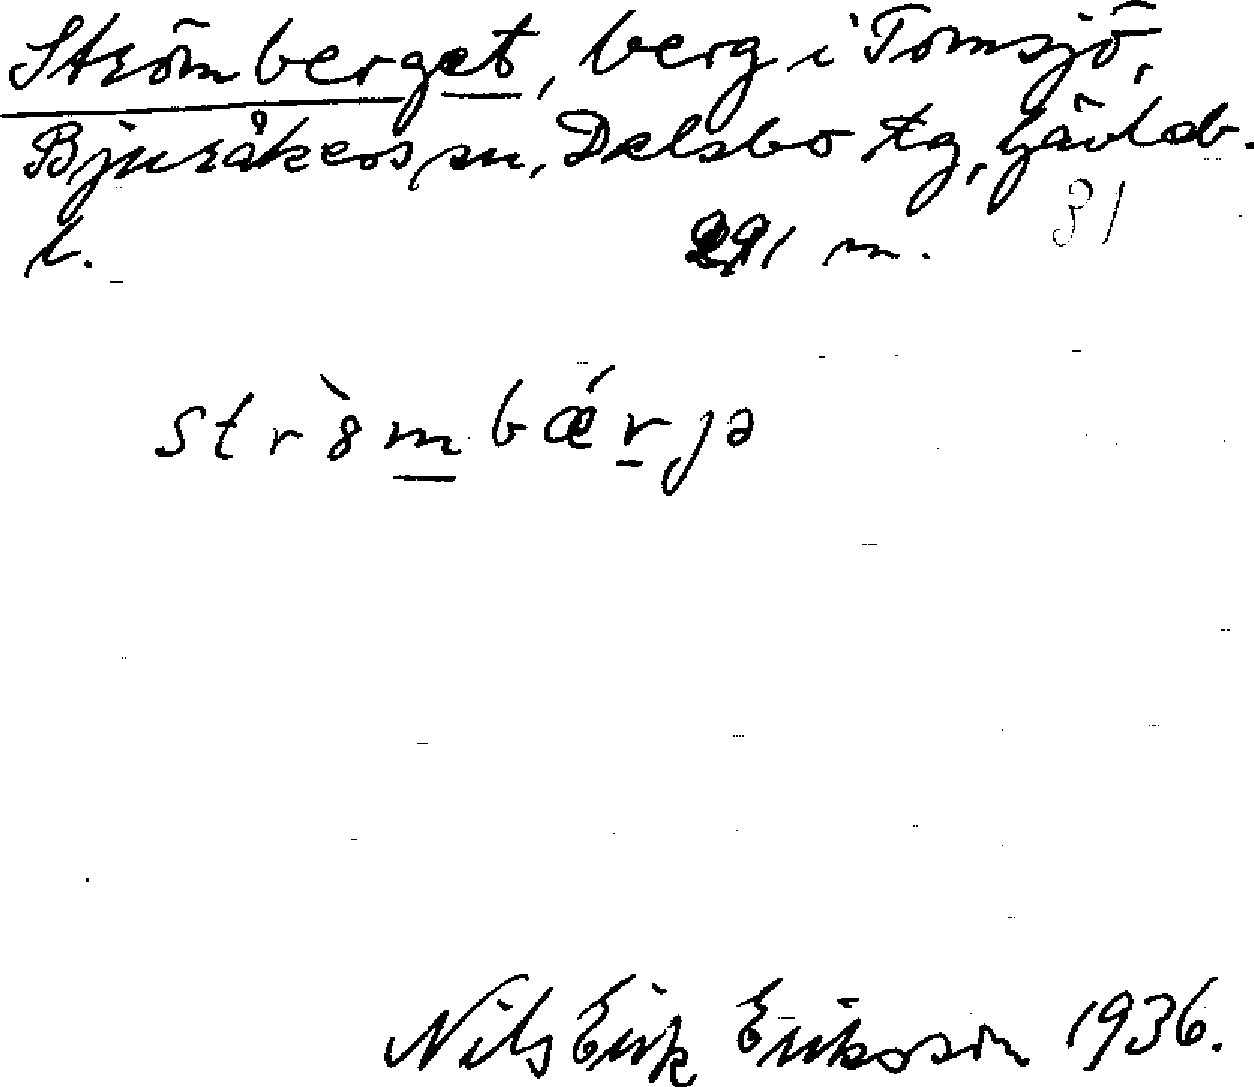 Strömberget, berg i Tomsjö,
Bjuråkers sn, Delsbo tg, Gävleb.
l. 291 m. 31
strò̀mbǽrjə
Nils Erik Eriksson 1936.